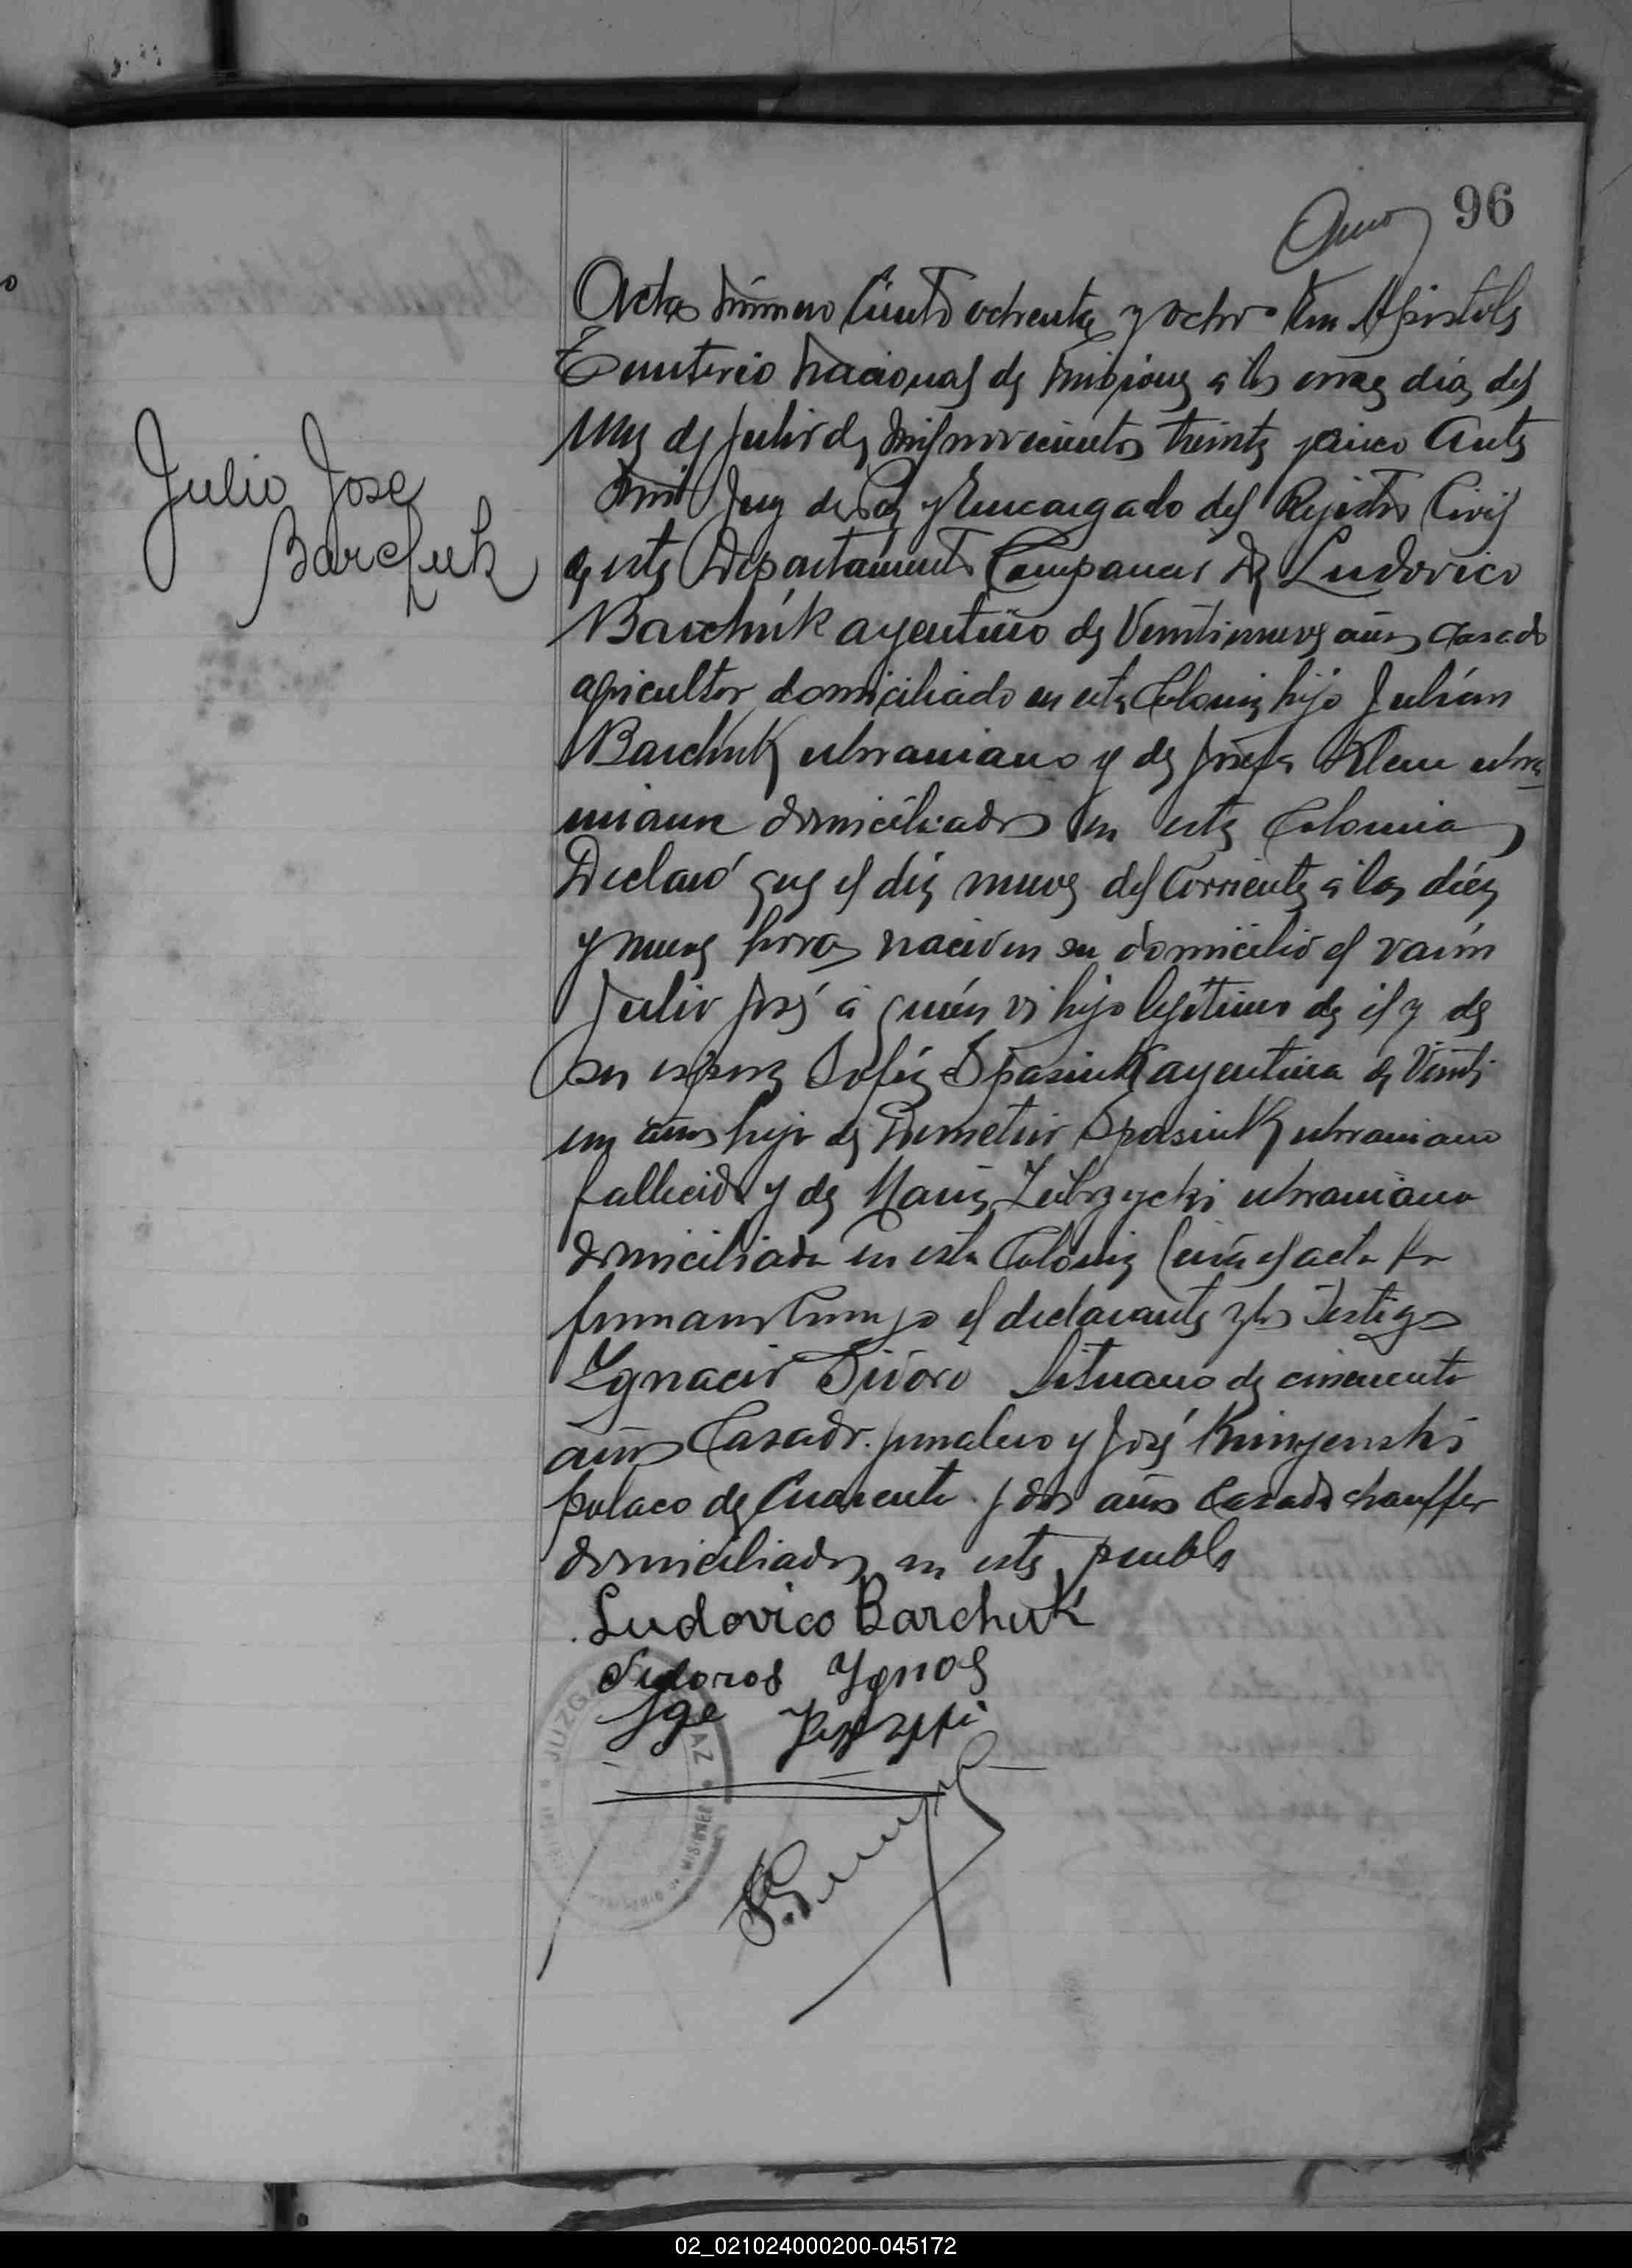 96
Acta número Ciento ochenta y ocho En Apostoles
Territorio Nacional de Misiones a los once dias del
Mes de Julio de mil novecientos treinta y cinco Ante
mi Juez de Paz y Encargado del Rejistro Civil
de este Departamento Compareció Dn Ludovico
Barchuk argentino de Veintinueve años casado
agricultor domiciliado en esta Colonia hijo Julián
Barchuk ukraniano y de Josefa Klem ukra
niana domiciliados en esta Colonia
Declaró que el día nueve del Corriente a las diéz
y nueve horas nació en su domicilio el varón
Julio José á quién vi hijo legítimo de él y de
su esposa Sofía Spasiuk argentina de Veinti
un años hija de Demetrio Spasiuk ukraniano
fallecido y de María Zubrzycki ukraniana
domiciliada en esta Colonia Leida el acta la
firmaron Conmigo el declarante y los Testigos
Ygnacio Sidoro Lituano de cincuenta
años Casado jornalero y José
polaco de Cuarenta y dos años Casado chauffer
domiciliados en este pueblo
Julio Jose
Barchuk
Ludovico Barchuk
Sidoros Ygnos
JUZGA AZ
MISIONES
02_021024000200-045172